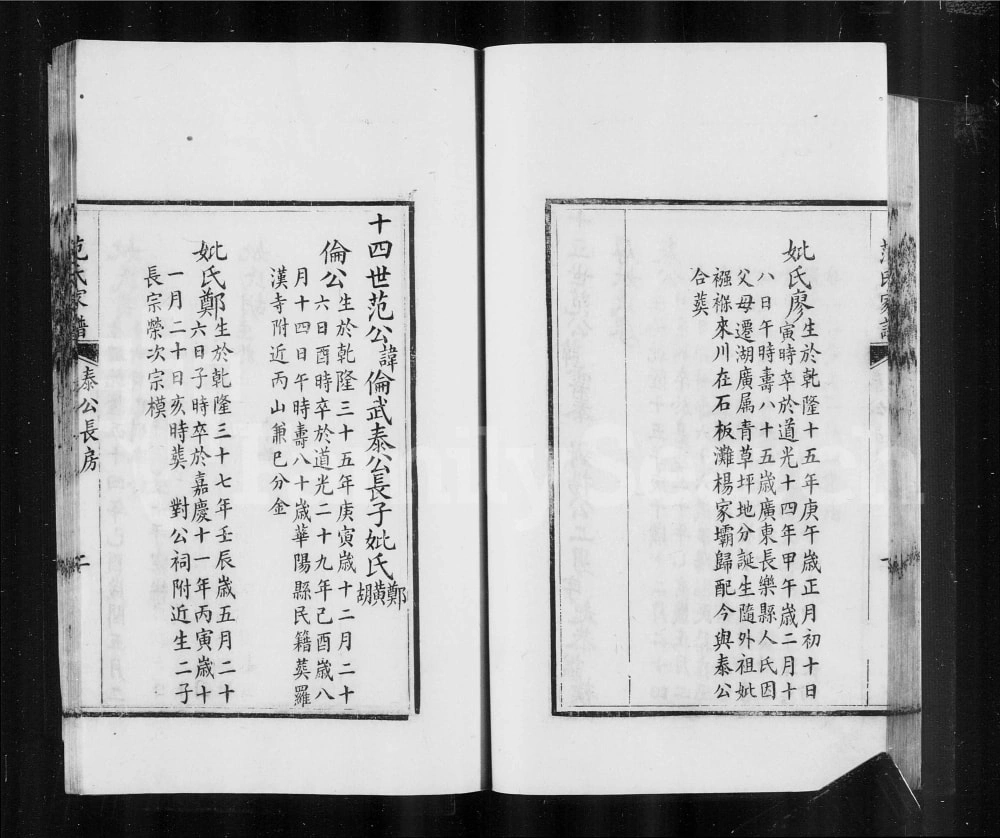 范氏家譜
妣氏廖生於乾隆十五年庚午歲正月初十日
寅時卒於道光十四年甲午歲二月十
八日午時壽八十五歲廣東長樂縣人氏因
父母遷湖廣属青草坪地分誕生隨外祖妣
襁褓來川在石板灘楊家壩歸配今與泰公
合葬
十四世范公諱倫武泰公長子妣氏鄭黃胡
倫公生於乾隆三十五年庚寅歲十二月二十
六日酉時卒於道光二十九年己酉歲八
月十四日午時壽八十歲華陽縣民籍葬羅
漢寺附近丙山兼巳分金
妣氏鄭生於乾隆三十七年壬辰歲五月二十
六日子時卒於嘉慶十一年丙寅歲十
一月二十日亥時葬 對公祠附近生二子
長宗榮次宗模
范氏家譜
泰公長房
二